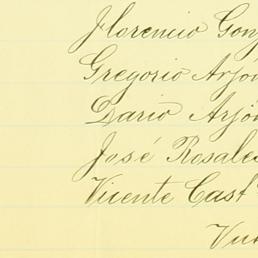 Florencio Gonz
Gregorio Arjón
Dario Arjón
José Rosales
Vicente Cast